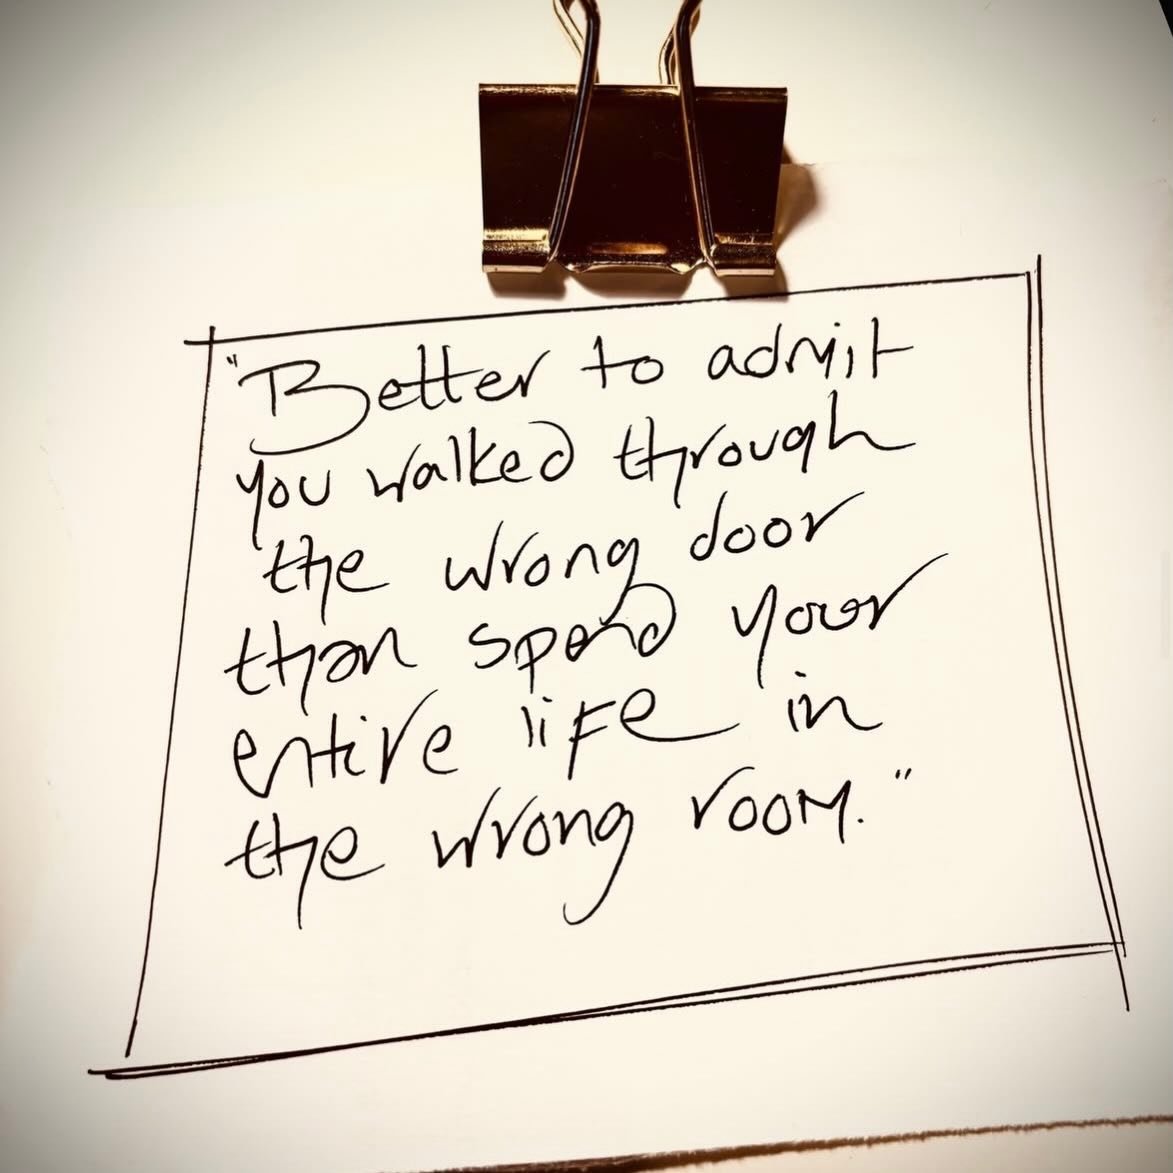 "Better to admit
you walked through
the wrong door
than spend your
entire life in
the wrong room."